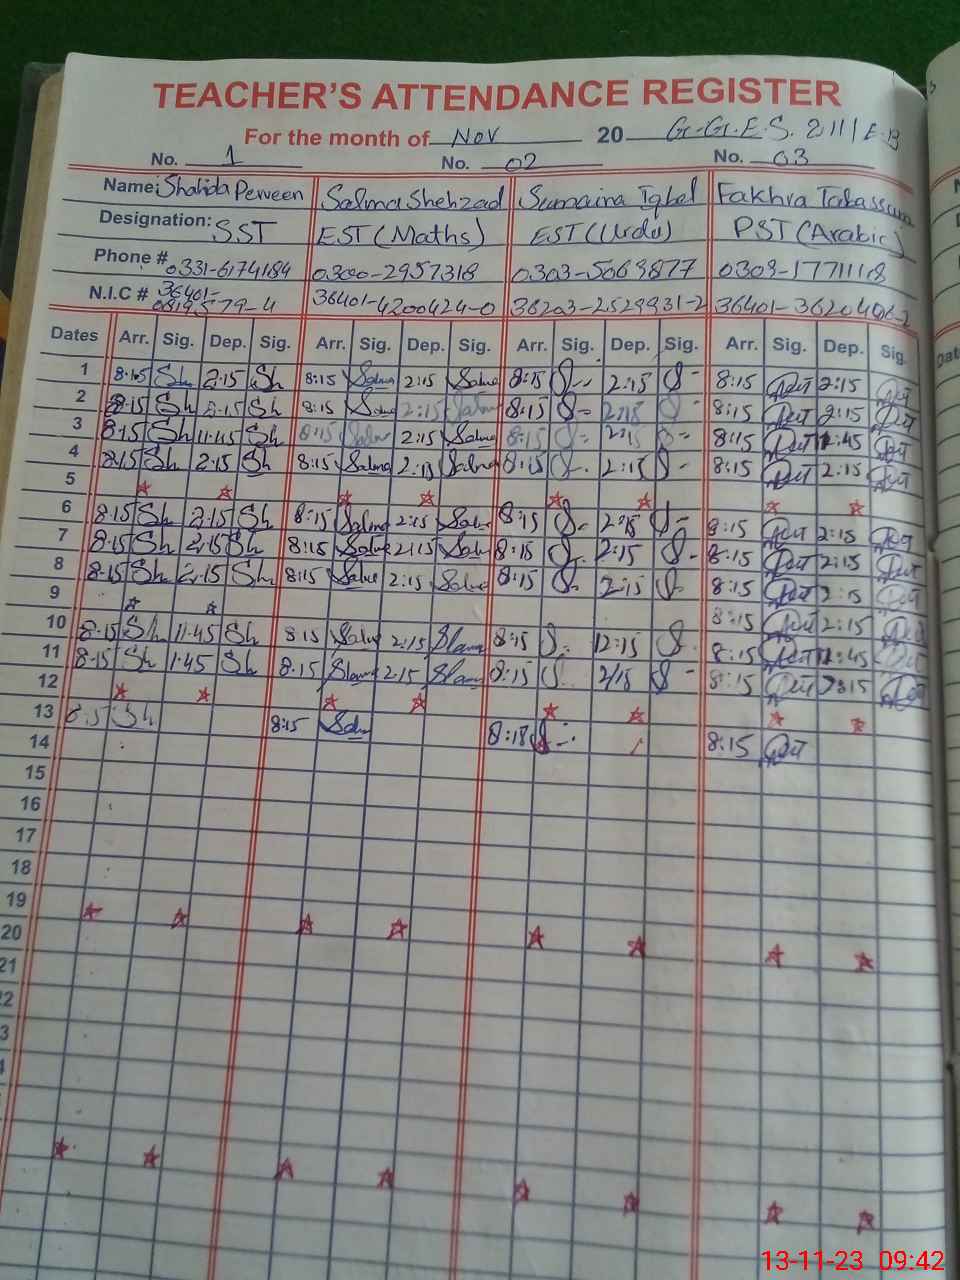 TEACHER'S ATTENDANCE REGISTER
For the month of Nov 20 G.G.E.S. 211/E.B
No. 1 No. 02 No. 03
Name: Shahida Perveen Salma Shehzad Sumaira Iqbal Fakhra Tabassum
Designation: SST EST (Maths) EST (Urdu) PST (Arabic)
Phone # 0331-6174184 0300-2957318 0303-5069877
N.I.C # 36401- 36401-4200424-0 36203-2529931-2
Dates Arr. Sig. Dep. Sig. Arr. Sig. Dep. Sig. Arr. Sig. Dep. Sig. Arr. Sig. Dep. Sig.
1 8:15 Sh 2:15 Sh 8:15 Salma 2:15 Salma 8:15 S 2:15 S 8:15 2:15
2 8:15 Sh 2:15 Sh 8:15 Salma 2:15 Salma 8:15 S 2:15 S 8:15 2:15
3 8:15 Sh 11:45 Sh 8:15 Salma 2:15 Salma 8:15 S 2:15 S 8:15 :45
4 8:15 Sh 2:15 Sh 8:15 Salma 2:15 Salma 8:15 S 2:15 S 8:15 2:15
5
6 8:15 Sh 2:15 Sh 8:15 Salma 2:15 Salma 8:15 S 2:15 S 8:15 2:15
7 8:15 Sh 2:15 Sh 8:15 Salma 2:15 Salma 8:15 S 2:15 S 8:15 2:15
8 8:15 Sh 2:15 Sh 8:15 Salma 2:15 Salma 8:15 S 2:15 S 8:15 2:15
9 8:15 2:15
10 8:15 Sh 11:45 Sh 8:15 Salma 2:15 8:15 S 12:15 S 8:15 :45
11 8:15 Sh 1:45 Sh 8:15 2:15 8:15 S 2:15 S 8:15
12
13 8:15 Sh 8:15 Salma 8:15 S 8:15
14
15
16
17
18
19
20
21
13-11-23 09:42